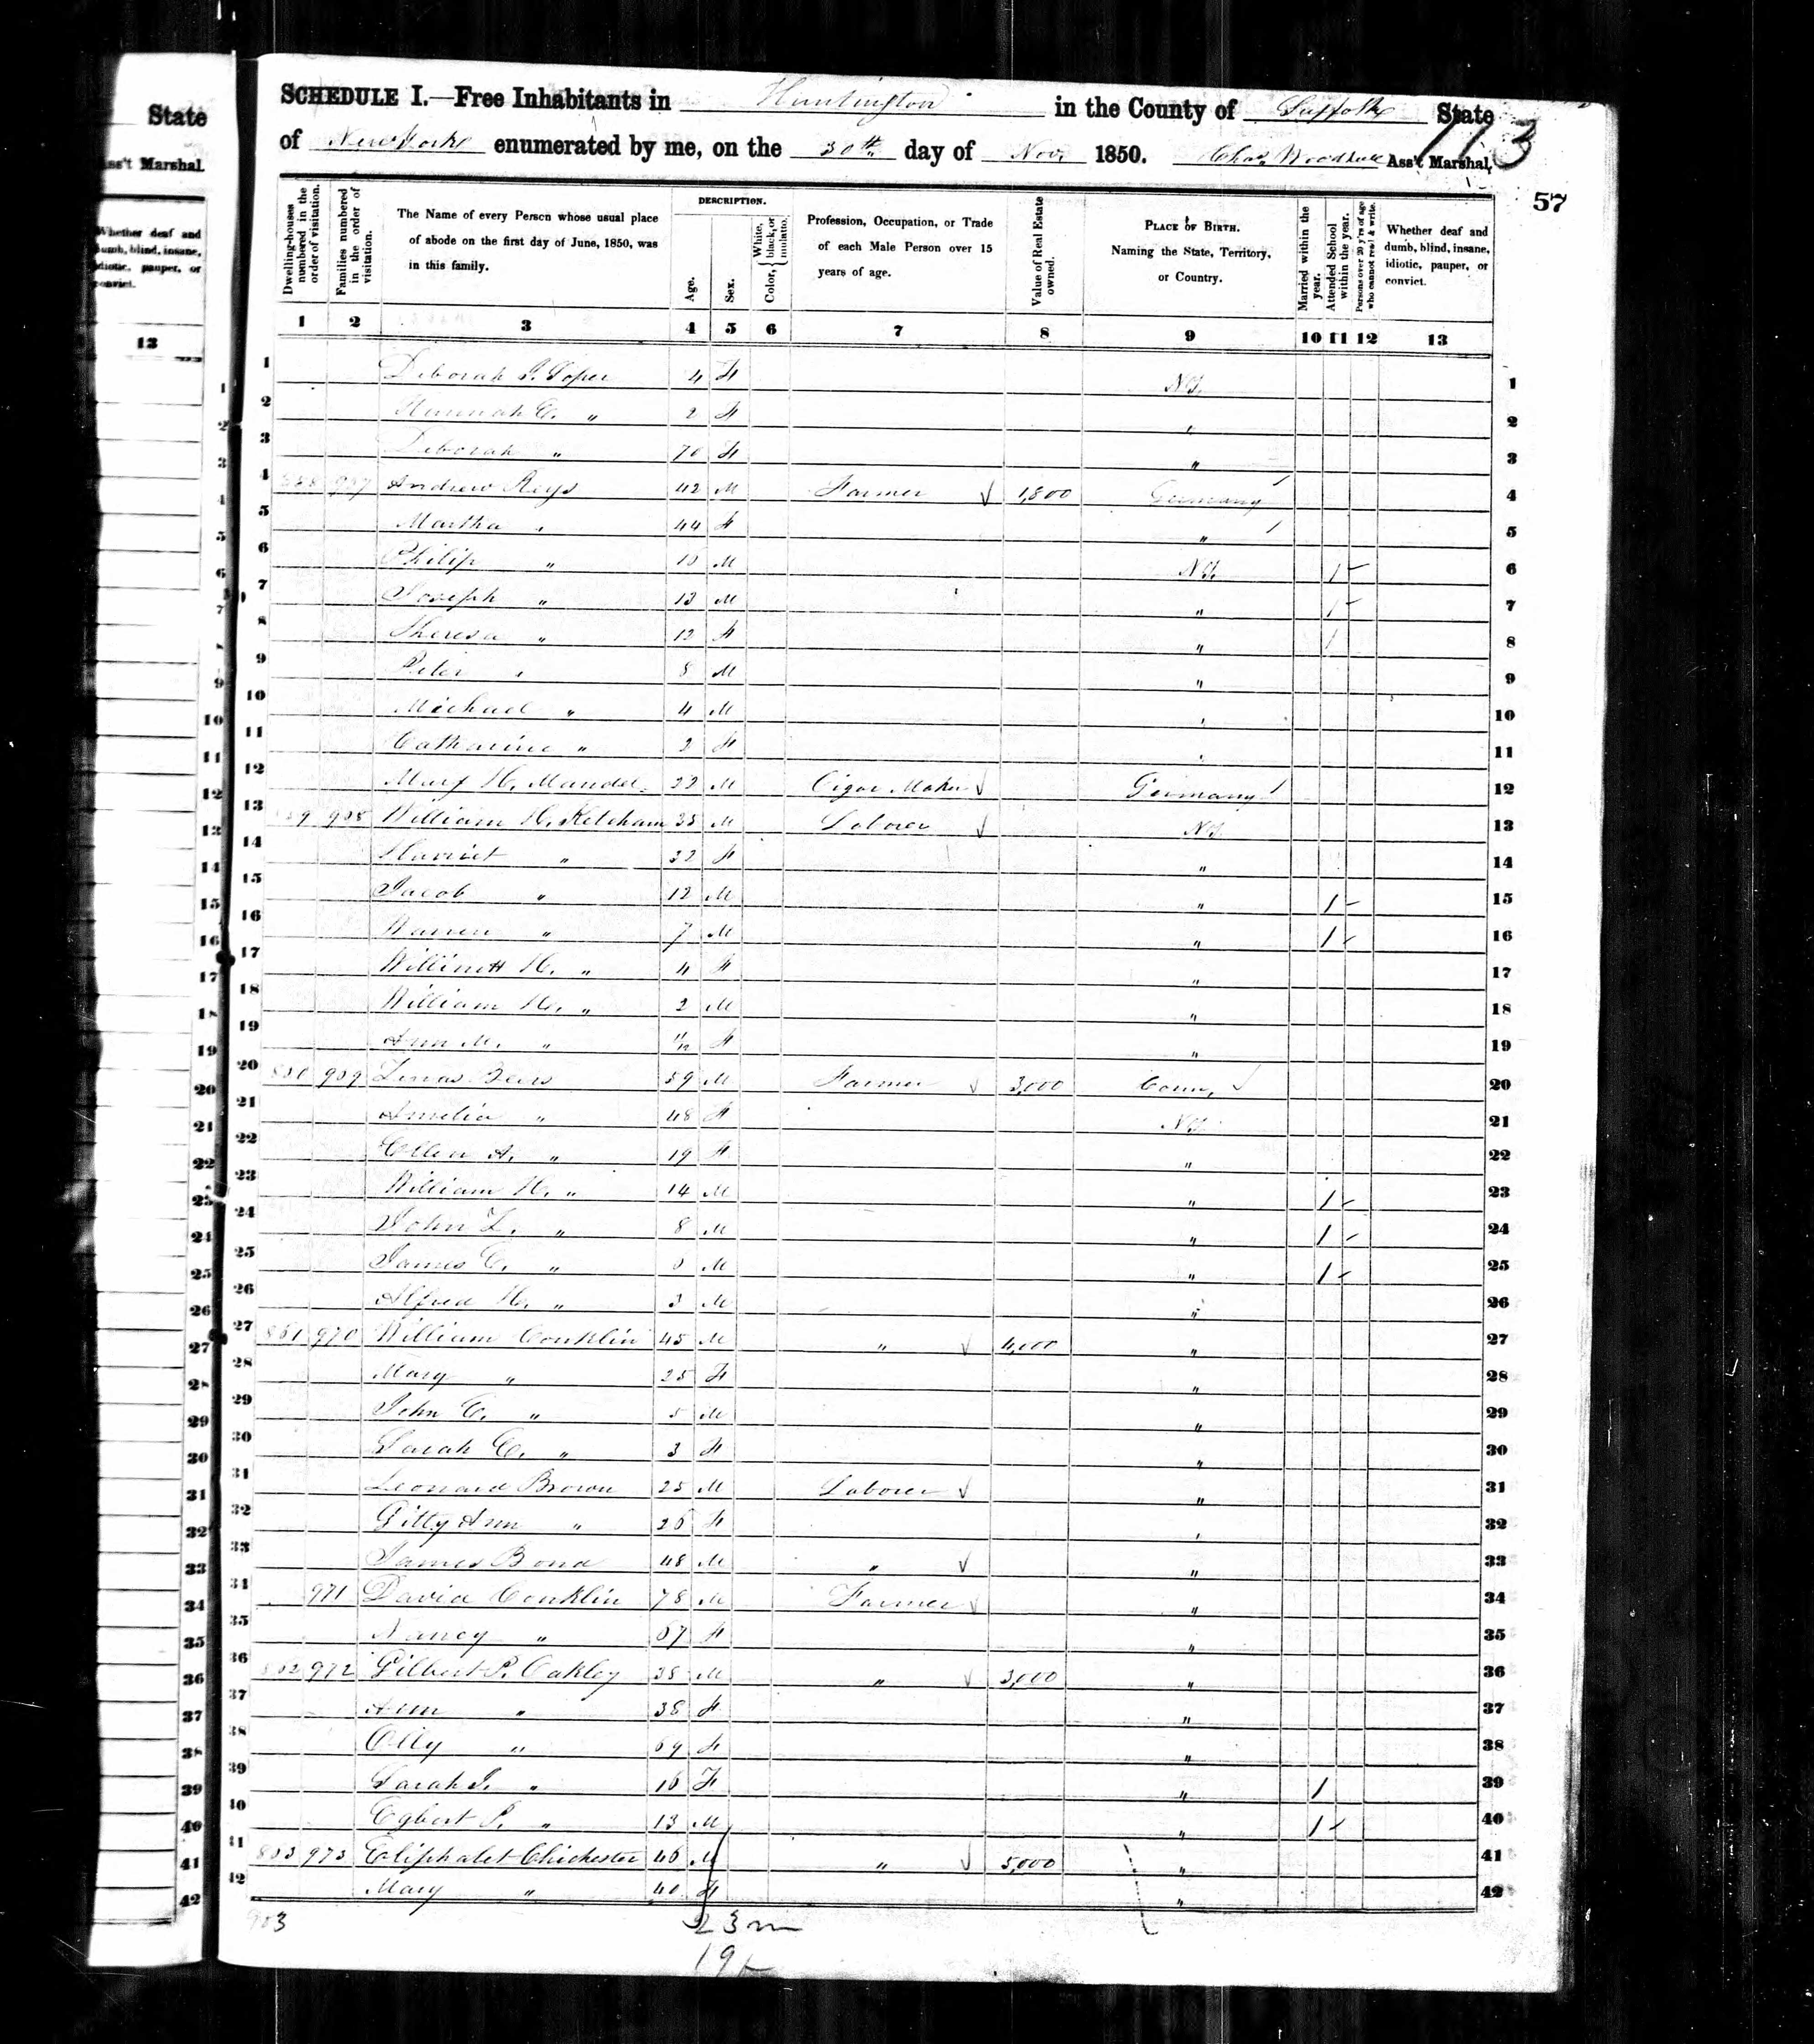 State
ss't Marshal.
Whether deaf and
dumb, blind, insane,
idiotic, pauper, or
convict.
13
SCHEDULE I.—Free Inhabitants in Huntington in the County of Suffolk State
of New York enumerated by me, on the 30th day of Nov. 1850. Chas. Woodhull Ass't Marshal.
113
57
Dwelling-houses numbered in the order of visitation.
Families numbered in the order of visitation.
The Name of every Person whose usual place of abode on the first day of June, 1850, was in this family.
DESCRIPTION.
Age.
Sex.
Color, { White, black, or mulatto.
Profession, Occupation, or Trade of each Male Person over 15 years of age.
Value of Real Estate owned.
PLACE OF BIRTH. Naming the State, Territory, or Country.
Married within the year.
Attended School within the year.
Persons over 20 y'rs of age who cannot read & write.
Whether deaf and dumb, blind, insane, idiotic, pauper, or convict.
1 2 3 4 5 6 7 8 9 10 11 12 13
1 Deborah J. Soper 4 F N.Y. 1
2 Hannah C. " 2 F " 2
3 Deborah " 70 F " 3
4 Andrew Keys 42 M Farmer 1,800 Germany 4
5 Martha " 44 F " 5
6 Philip " M N.Y. 1 6
7 Joseph " 13 M " 1 7
8 Theresa " 12 F " 1 8
9 Peter " 8 M " 9
10 Michael " 4 M " 10
11 Catharine " 2 F " 11
12 M 22 M Cigar Maker Germany 12
13 William H. Ketcham 35 M Laborer N.Y. 13
14 Harriet " 32 F " 14
15 Jacob " 12 M " 1 15
16 Warren " 7 M " 1 16
17 H. " 4 F " 17
18 William H. " 2 M " 18
19 Ann M. " F " 19
20 Beers 59 M Farmer 3,000 Conn. 20
21 Amelia " 48 F N.Y. 21
22 Ellen A. " 19 F " 22
23 William H. " 14 M " 1 23
24 John L. " 8 M " 1 24
25 James C. " M " 1 25
26 Alfred H. " 3 M " 26
27 970 William Conklin 45 M " 4,000 " 27
28 Mary " 25 F " 28
29 John C. " 5 M " 29
30 Sarah C. " 3 F " 30
31 Leonard Brown 25 M Laborer " 31
32 Gitty Ann " 26 F " 32
33 James Bond 48 M " " 33
34 971 David Conklin 78 M Farmer " 34
35 Nancy " 67 F " 35
36 972 Gilbert P. Oakley 38 M " 3,000 " 36
37 Ann " 38 F " 37
38 " 69 F " 38
39 Sarah J. " 16 F " 1 39
40 Egbert S. " 13 M " 1 40
41 973 Eliphalet Chichester 46 M " 5,000 " 41
42 Mary " 40 F " 42
903
23 m
19 f